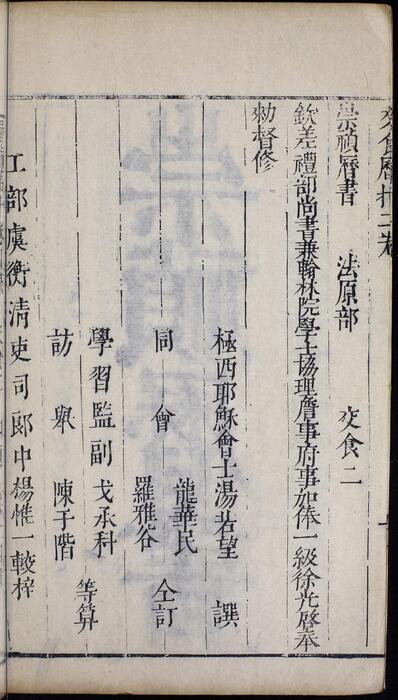 交食曆指二卷
崇禎曆書　法原部　交食二
欽差禮部尚書兼翰林院學士協理詹事府事加俸一級徐光啓奉
勑督修
極西耶穌會士湯若望　譔
龍華民
同會　仝訂
羅雅谷
學習監副　戈承科
等算
訪舉　陳于階
工部虞衡清吏司郎中楊惟一較梓